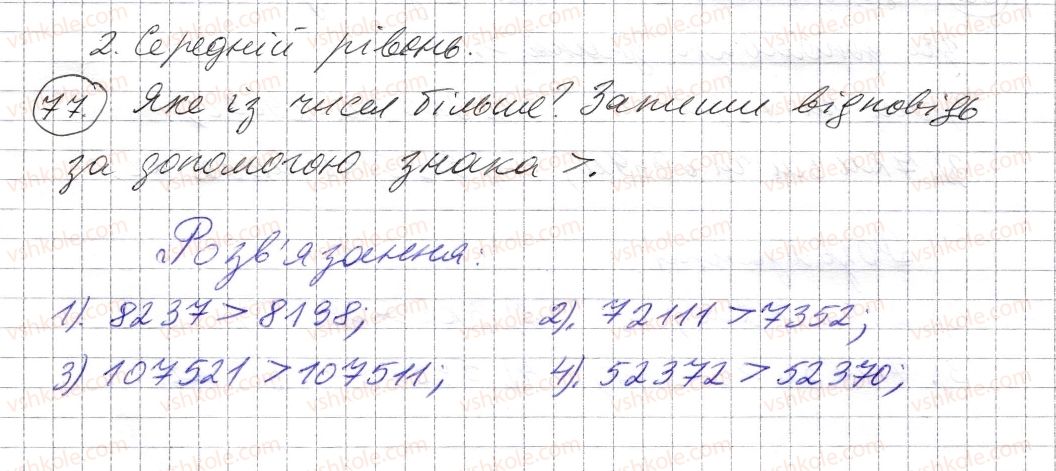 2. Середній рівень.
77. Яке із чисел більше? Запиши відповідь
за допомогою знака >.
Розв'язання:
1). 8237 > 8198; 2). 72111 > 7352;
3) 107521 > 107511; 4). 52372 > 52370;